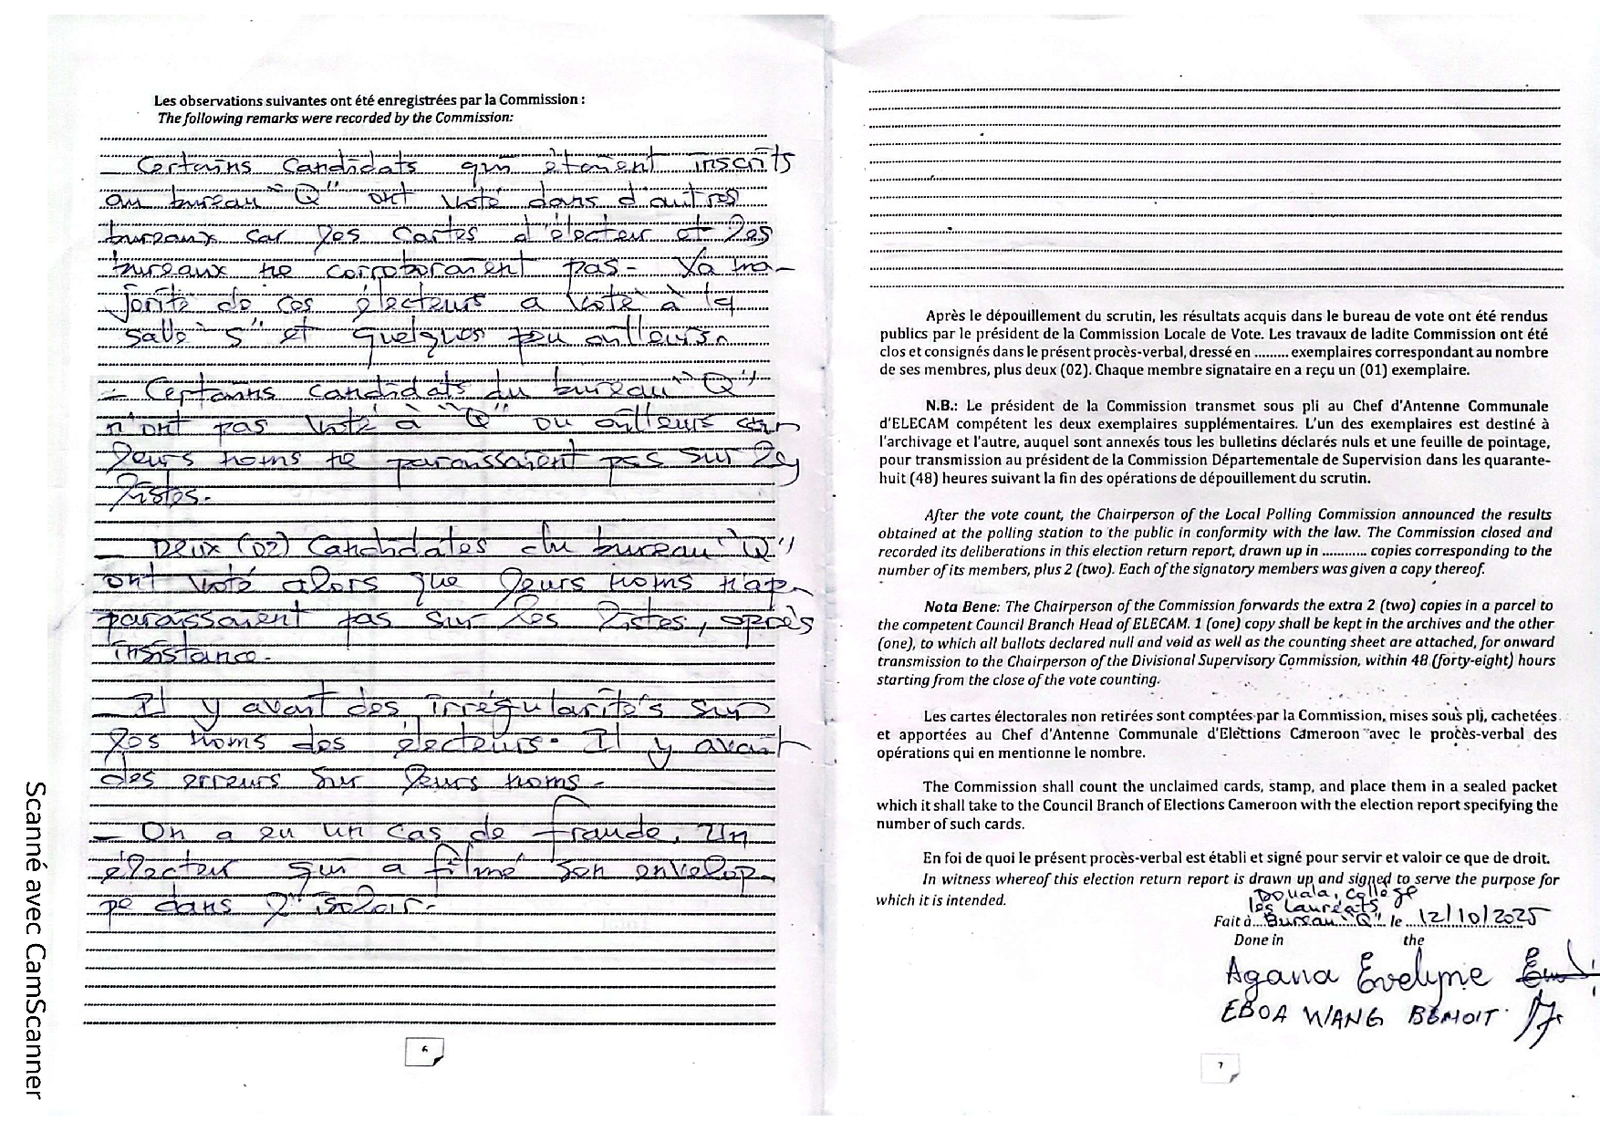 Les observations suivantes ont été enregistrées par la Commission :
The following remarks were recorded by the Commission:
– Certains candidats qui étaient inscrits
au bureau "Q" ont voté dans d'autres
bureaux car les cartes d'électeur et les
bureaux ne corroboraient pas. La ma-
jorité de ces électeurs a voté à la
salle "S" et quelques peu ailleurs.
– Certains candidats du bureau "Q"
n'ont pas voté à "Q" ou ailleurs car
leurs noms ne paraissaient pas sur les
listes.
– Deux (02) Candidates du bureau "Q"
ont voté alors que leurs noms n'ap-
paraissaient pas sur les listes, après
insistance.
– Il y avait des irrégularités sur
les noms des électeurs. Il y avait
des erreurs sur leurs noms.
– On a eu un cas de fraude. Un
électeur qui a filmé son envelop-
pe dans l'isoloir.
6
Scanné avec CamScanner
Après le dépouillement du scrutin, les résultats acquis dans le bureau de vote ont été rendus
publics par le président de la Commission Locale de Vote. Les travaux de ladite Commission ont été
clos et consignés dans le présent procès-verbal, dressé en ......... exemplaires correspondant au nombre
de ses membres, plus deux (02). Chaque membre signataire en a reçu un (01) exemplaire.
N.B.: Le président de la Commission transmet sous pli au Chef d'Antenne Communale
d'ELECAM compétent les deux exemplaires supplémentaires. L'un des exemplaires est destiné à
l'archivage et l'autre, auquel sont annexés tous les bulletins déclarés nuls et une feuille de pointage,
pour transmission au président de la Commission Départementale de Supervision dans les quarante-
huit (48) heures suivant la fin des opérations de dépouillement du scrutin.
After the vote count, the Chairperson of the Local Polling Commission announced the results
obtained at the polling station to the public in conformity with the law. The Commission closed and
recorded its deliberations in this election return report, drawn up in ............ copies corresponding to the
number of its members, plus 2 (two). Each of the signatory members was given a copy thereof.
Nota Bene: The Chairperson of the Commission forwards the extra 2 (two) copies in a parcel to
the competent Council Branch Head of ELECAM. 1 (one) copy shall be kept in the archives and the other
(one), to which all ballots declared null and void as well as the counting sheet are attached, for onward
transmission to the Chairperson of the Divisional Supervisory Commission, within 48 (forty-eight) hours
starting from the close of the vote counting.
Les cartes électorales non retirées sont comptées par la Commission, mises sous pli, cachetées
et apportées au Chef d'Antenne Communale d'Elections Cameroon avec le procès-verbal des
opérations qui en mentionne le nombre.
The Commission shall count the unclaimed cards, stamp, and place them in a sealed packet
which it shall take to the Council Branch of Elections Cameroon with the election report specifying the
number of such cards.
En foi de quoi le présent procès-verbal est établi et signé pour servir et valoir ce que de droit.
In witness whereof this election return report is drawn up and signed to serve the purpose for
which it is intended.
Douala, collège
les Lauréats
Fait à Bureau "Q" le 12/10/2025
Done in the
Agana Evelyne
EBOA WANG BENOIT
7